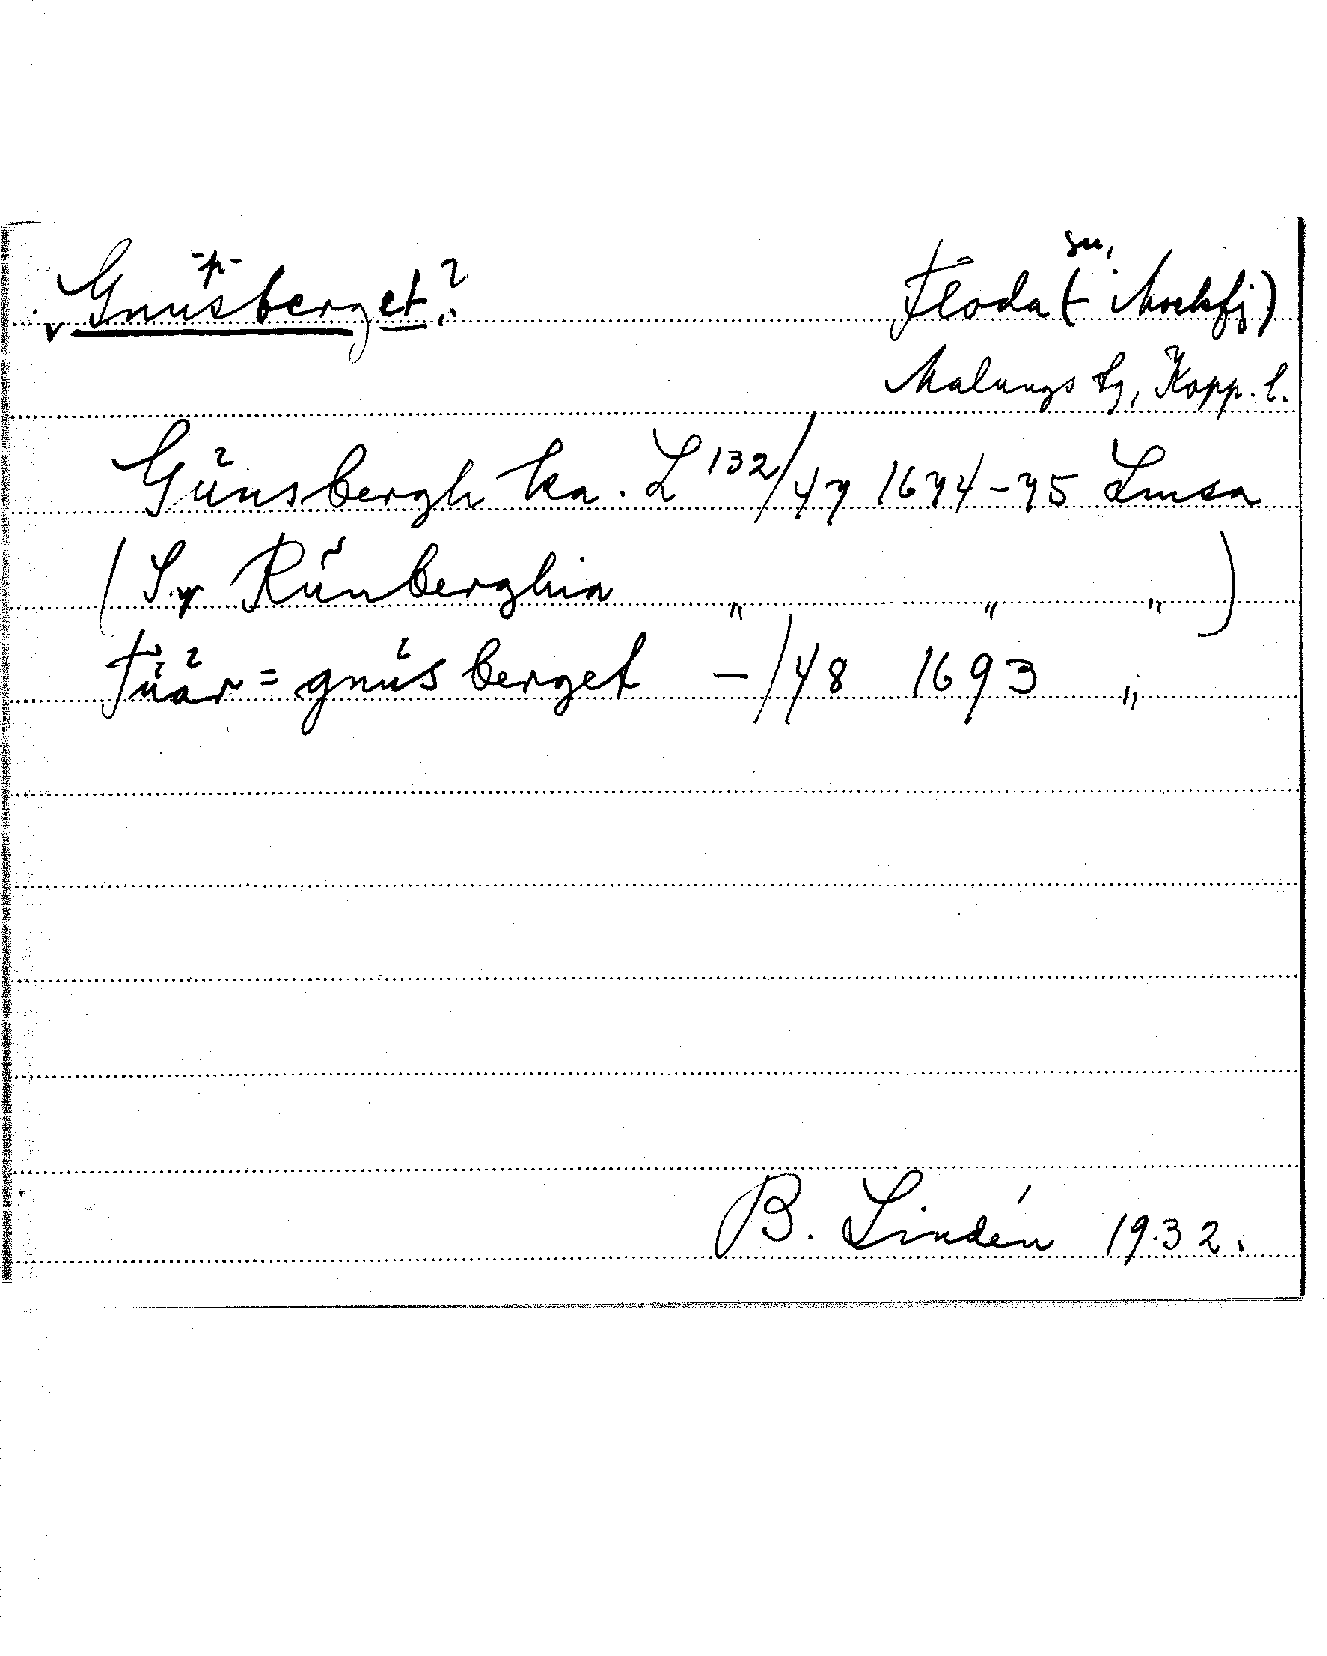 -p-
Gnusberget?
sn,
Floda (- i Mockfj)
Malungs tg, Kopp. l.
Gunsbergh ka. L 132/47 1674-75 Lmsa
(S.y Runberghia " " ")
Tuär=gnus berget -/48 1693 "
B. Lindén 1932.